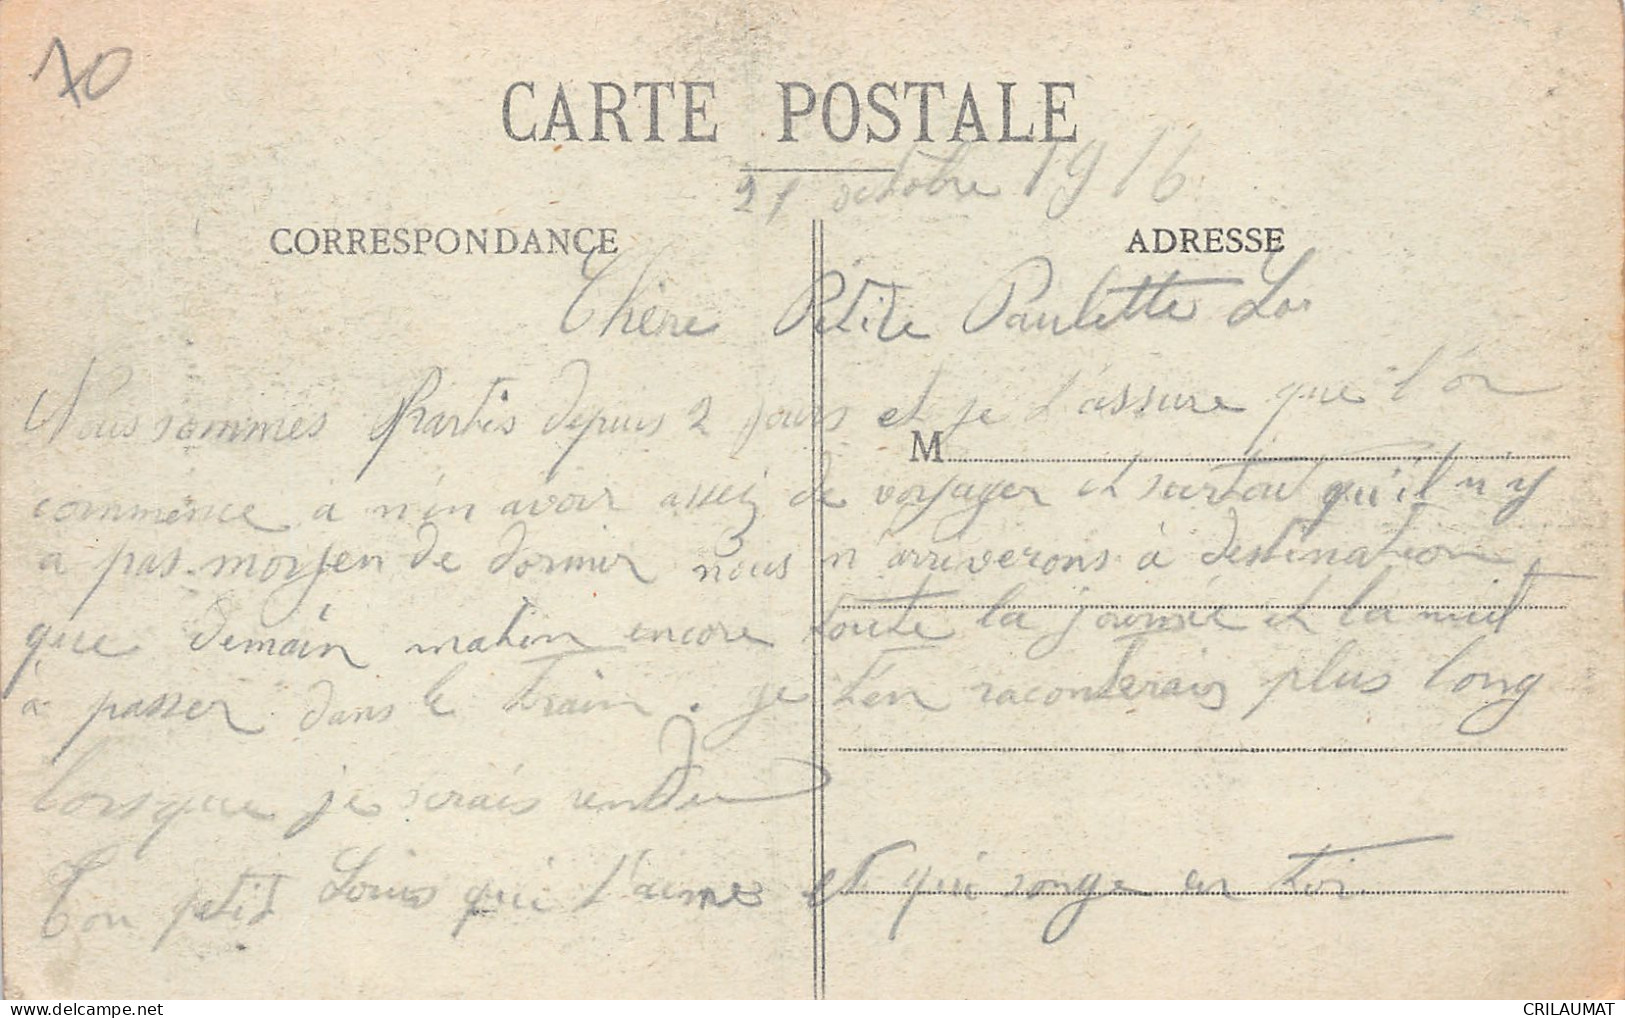 70
CARTE POSTALE
21 octobre 1916
CORRESPONDANCE
ADRESSE
Chère Petite Paulette Lou
Nous sommes Partis depuis 2 jours et je t'assure que l'on
M
commence à n'en avoir assez de voyager et surtout qu'il n'y
a pas moyen de dormir nous n'arriverons à destination
que demain matin encore toute la journée et la nuit
à passer dans le train. je t'en raconterais plus long
lorsque je serais rendu
Ton petit Louis qui t'aimes et qui songe en toi
CRILAUMAT